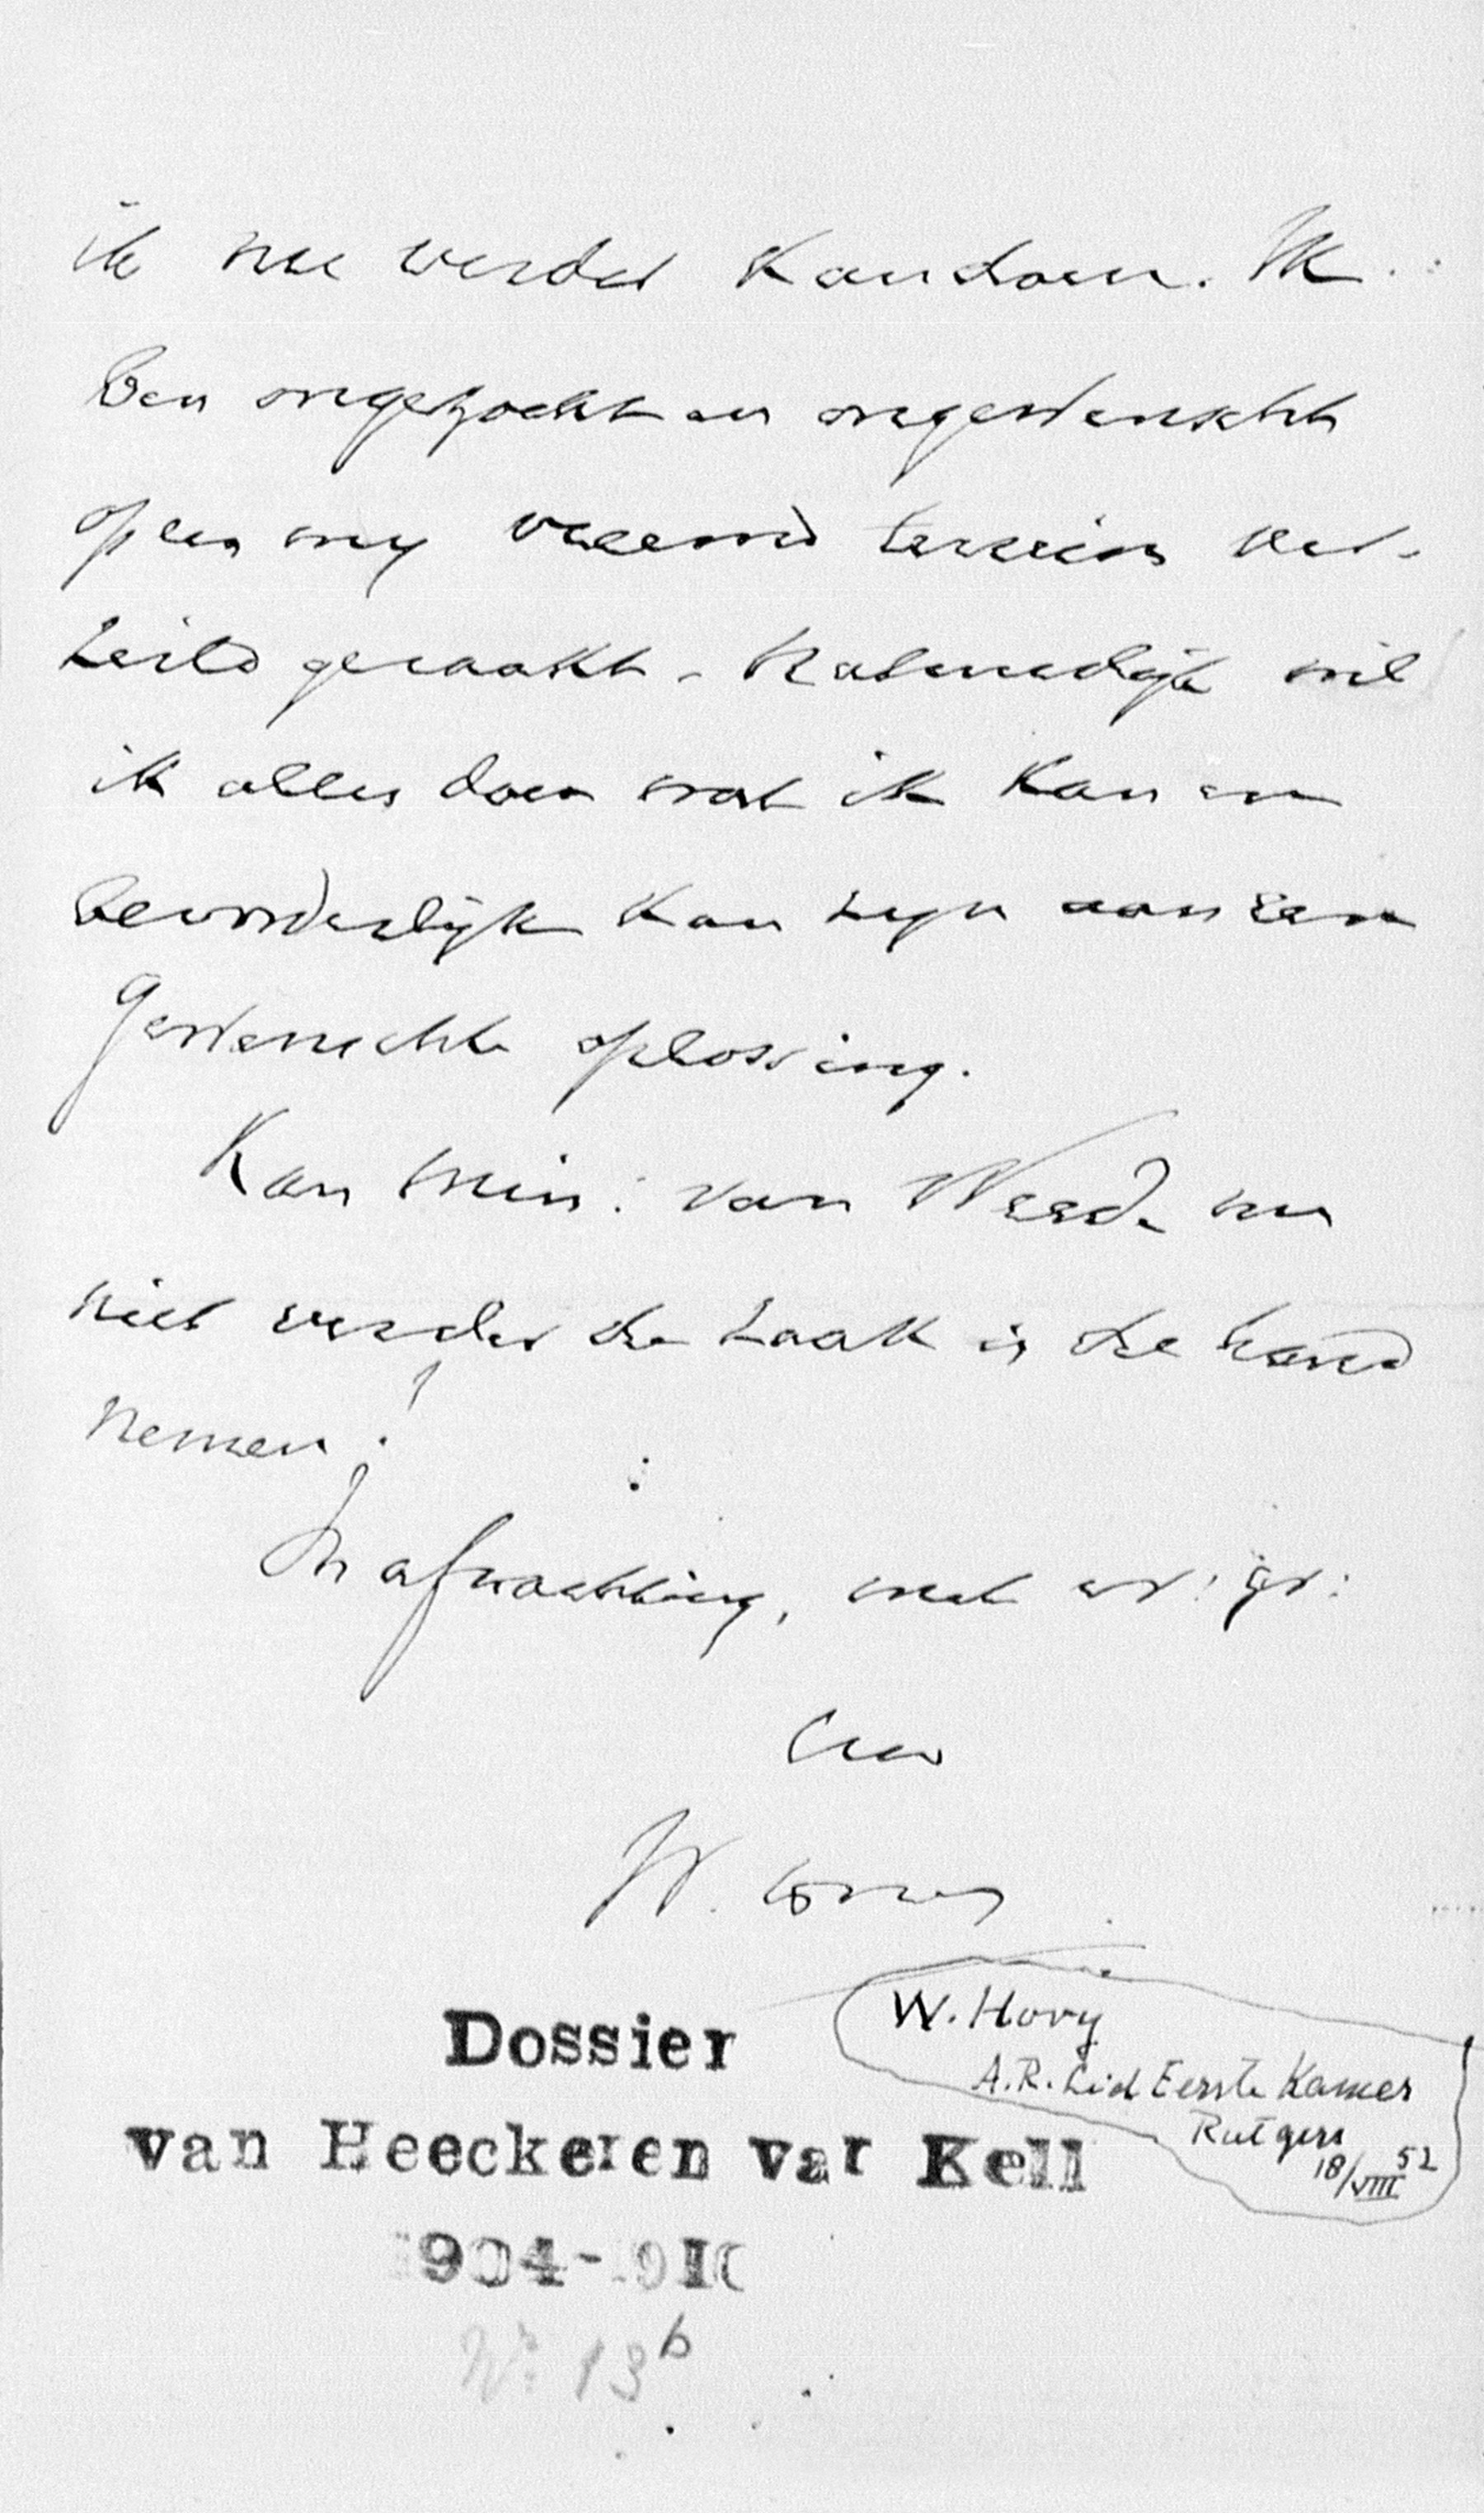 ik nu verder kan doen. Ik
ben ongezocht en ongewenscht
op een mij vreemd terrein ver-
zeild geraakt. Natuurlijk wil
ik alles doen wat ik kan en
bevorderlijk kan zijn aan een
gewenschte oplossing.
Kan Min: van Weede nu
niet verder de zaak in de hand
nemen?
In afwachting, met vr: gr:
Uw
W. Hovy
Dossier
van Heeckeren van Kell
1904-1910
W. Hovy
A.R. Lid Eerste Kamer
Rutgers
18/VIII 52
No 13b